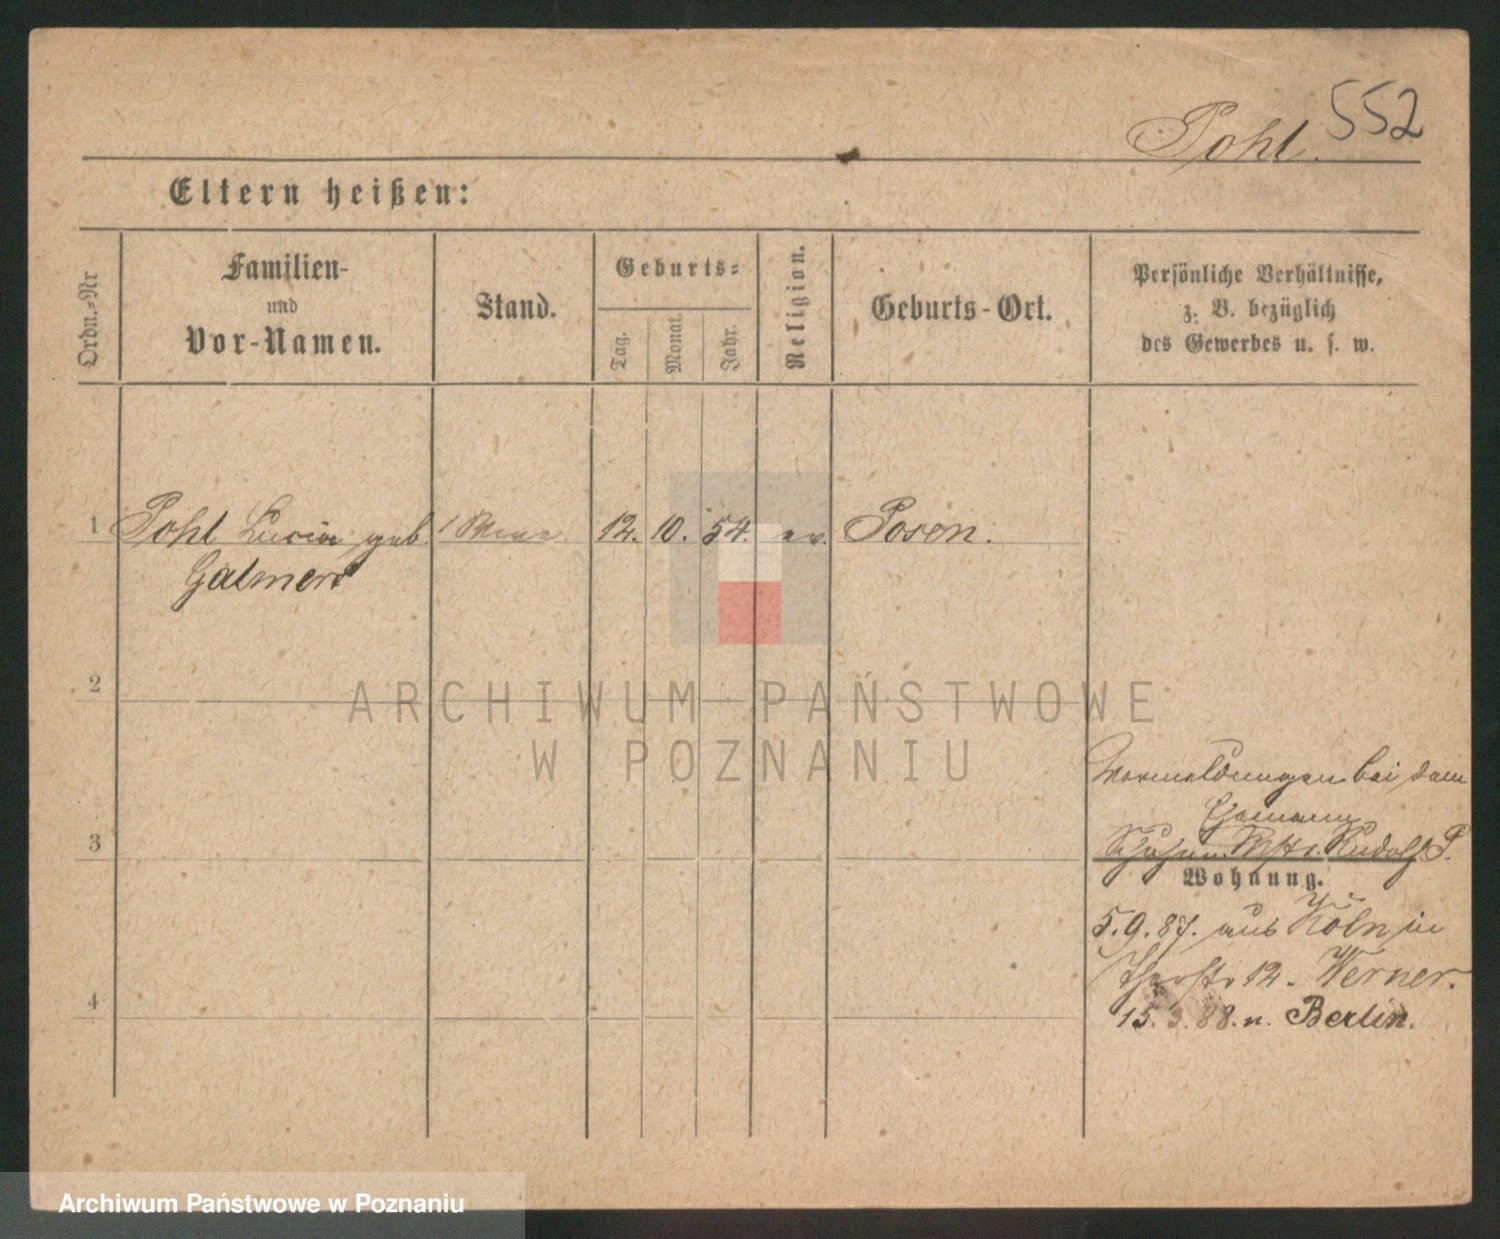 552
Pohl.
Eltern heißen:
Ordn.-Nr
Familien-
und
Vor-Namen.
Stand.
Geburts-
Tag.
Monat.
Jahr.
Religion.
Geburts-Ort.
Persönliche Verhältnisse,
z. B. bezüglich
des Gewerbes u. s. w.
1 Pohl Lucia geb. 12. 10. 54. ev. Posen.
2
ARCHIWUM PAŃSTWOWE
W POZNANIU
Vormeldungen bei dem
Ehemann
3 Rudolf P.
Wohnung.
5.9.87. aus Köln in
12. Werner.
4 15. 3. 88. n. Berlin.
Archiwum Państwowe w Poznaniu